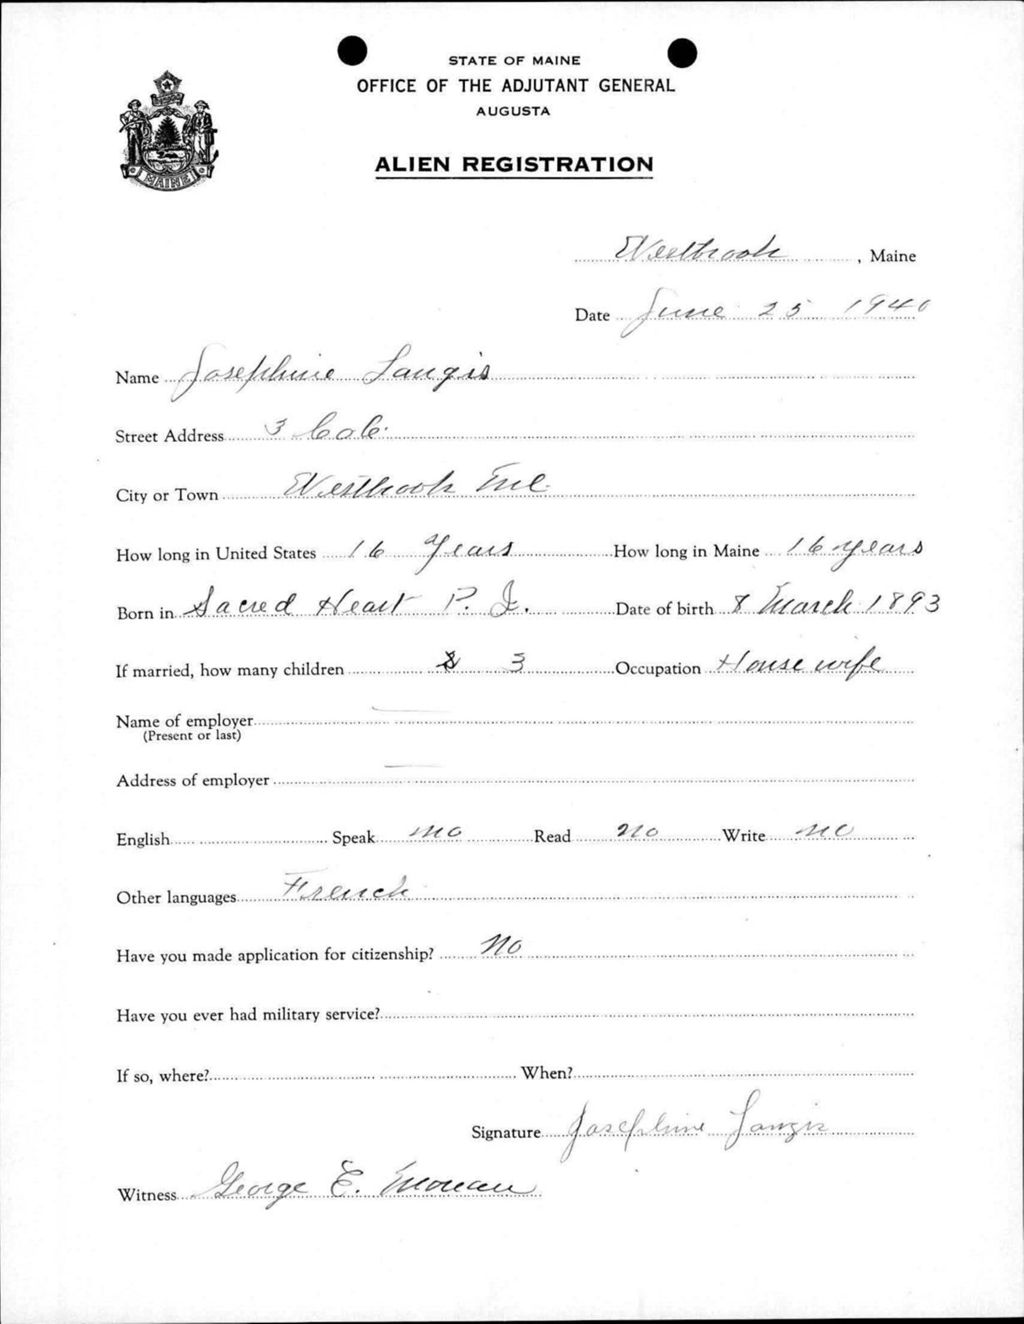 STATE OF MAINE
OFFICE OF THE ADJUTANT GENERAL
AUGUSTA
ALIEN REGISTRATION
MAINE
Westbrook, Maine
Date June 25 1940
Name Josephine Langis
Street Address 3
City or Town Westbrook Me.
How long in United States 16 Years How long in Maine 16 years
Born in Sacred Heart P. Q. Date of birth 8 March 1893
If married, how many children 3 Occupation House wife
Name of employer
(Present or last)
Address of employer
English Speak no Read no Write no
Other languages French
Have you made application for citizenship? No
Have you ever had military service?
If so, where? When?
Signature Josephine Langis
Witness George E.